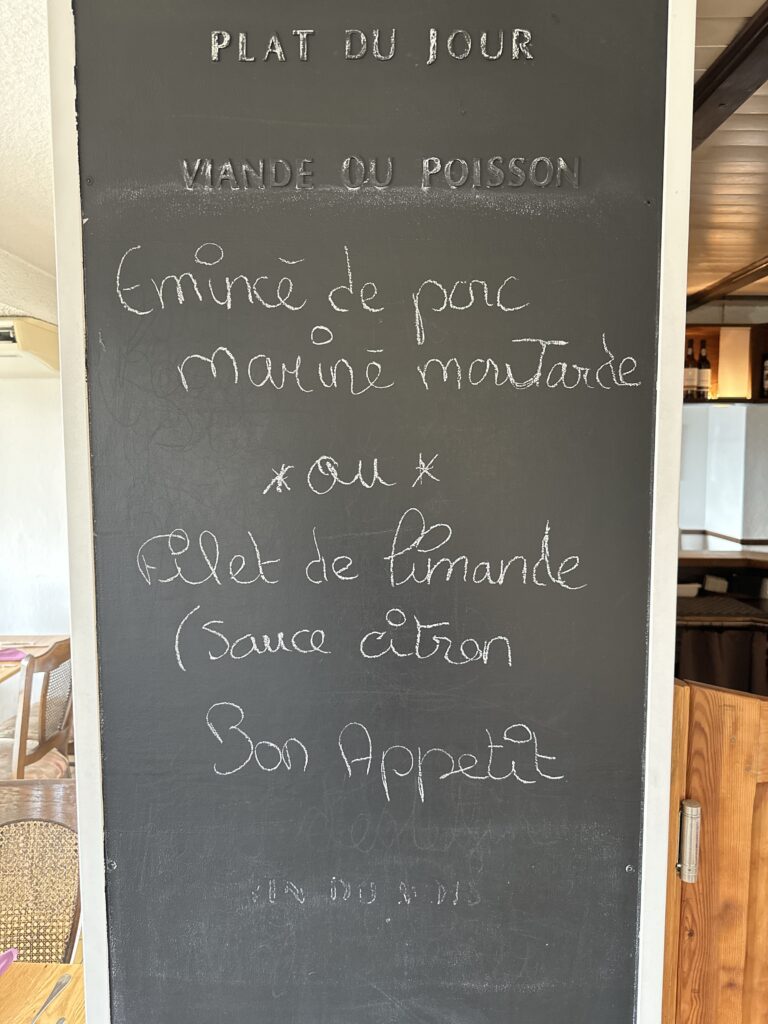 PLAT DU JOUR
VIANDE OU POISSON
Emincé de porc
mariné mouTarde
* ou *
Filet de limande
(Sauce citron
Bon Appetit
VIN DU MOIS